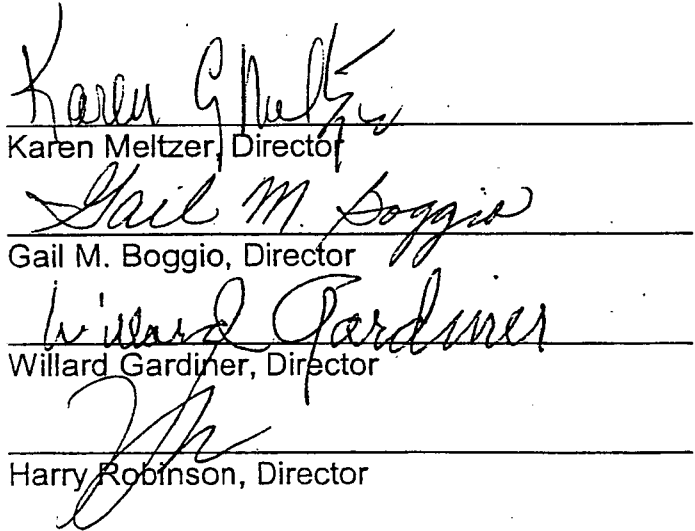 Karen G Meltzer
Karen Meltzer, Director
Gail M. Boggio
Gail M. Boggio, Director
Willard Gardiner
Willard Gardiner, Director
Harry Robinson, Director